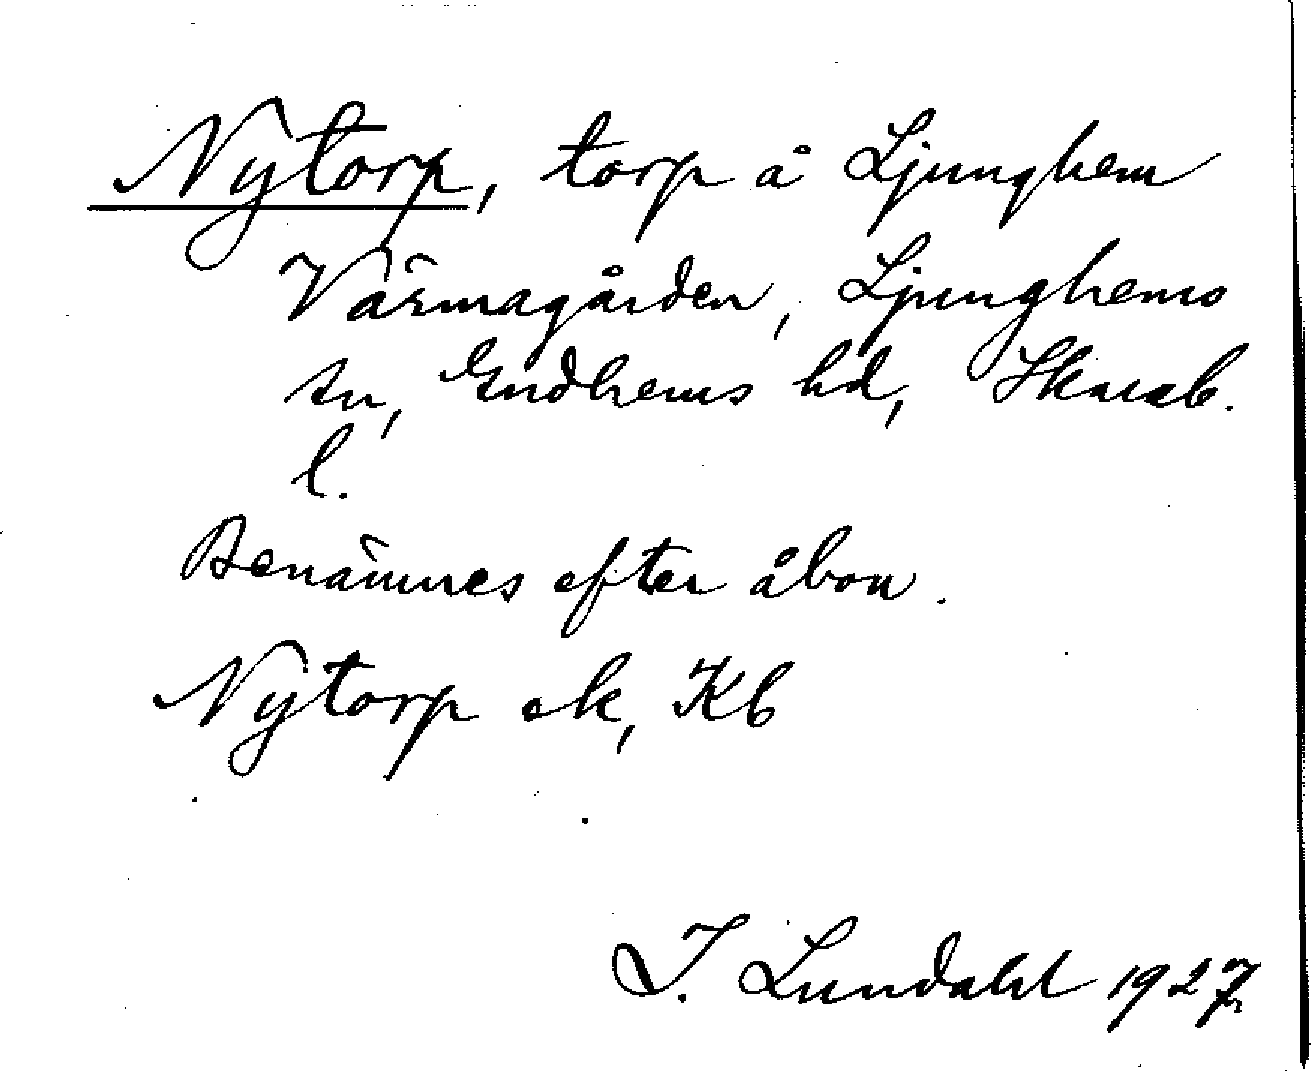 Nytorp, torp å Ljunghem
Värmagården, Ljunghems
sn, Gudhems hd, Skarab.
l.
Benämnes efter åbon.
Nytorp ek, Kb
I. Lundahl 1927